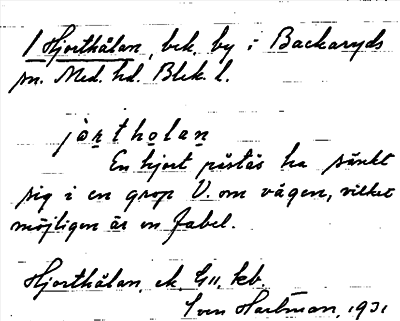 1 Hjorthålan, bek. by i Backaryds
sn. Med. hd. Blek. l.
jòrtholan
En hjort påstås ha sänkt
sig i en grop V. om vägen, vilket
möjligen är en fabel.
Hjorthålan, ek. G11, kb.
Sven Hartman, 1931